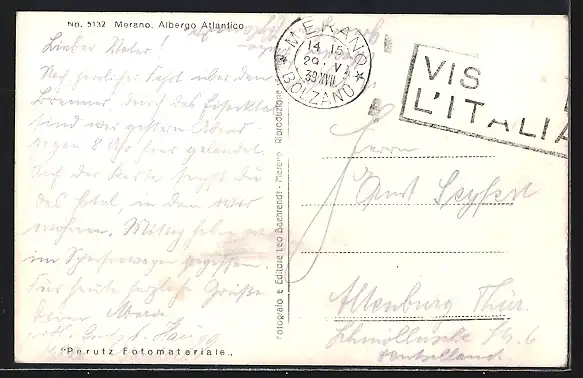 No. 5132 Merano. Albergo Atlantico
Lieber Vater!
Nach herrlicher Fahrt über den
Brenner, durch das Eisacktal
sind wir gestern Abend
gegen 8 Uhr hier gelandet.
Auf der Karte siehst du
das Hotel, in dem wir
wohnen. Mittag haben wir
im Speisewagen gegessen.
Für heute herzliche Grüße
"Perutz Fotomateriale"
Fotografo e Editore Leo Baehrendt - Merano Riproduzione
MERANO
14 15
29 VI
39 XVII
BOLZANO
VIS
L'ITALIA
Herrn
Kurt Seyfert
Altenburg Thür.
6
Deutschland